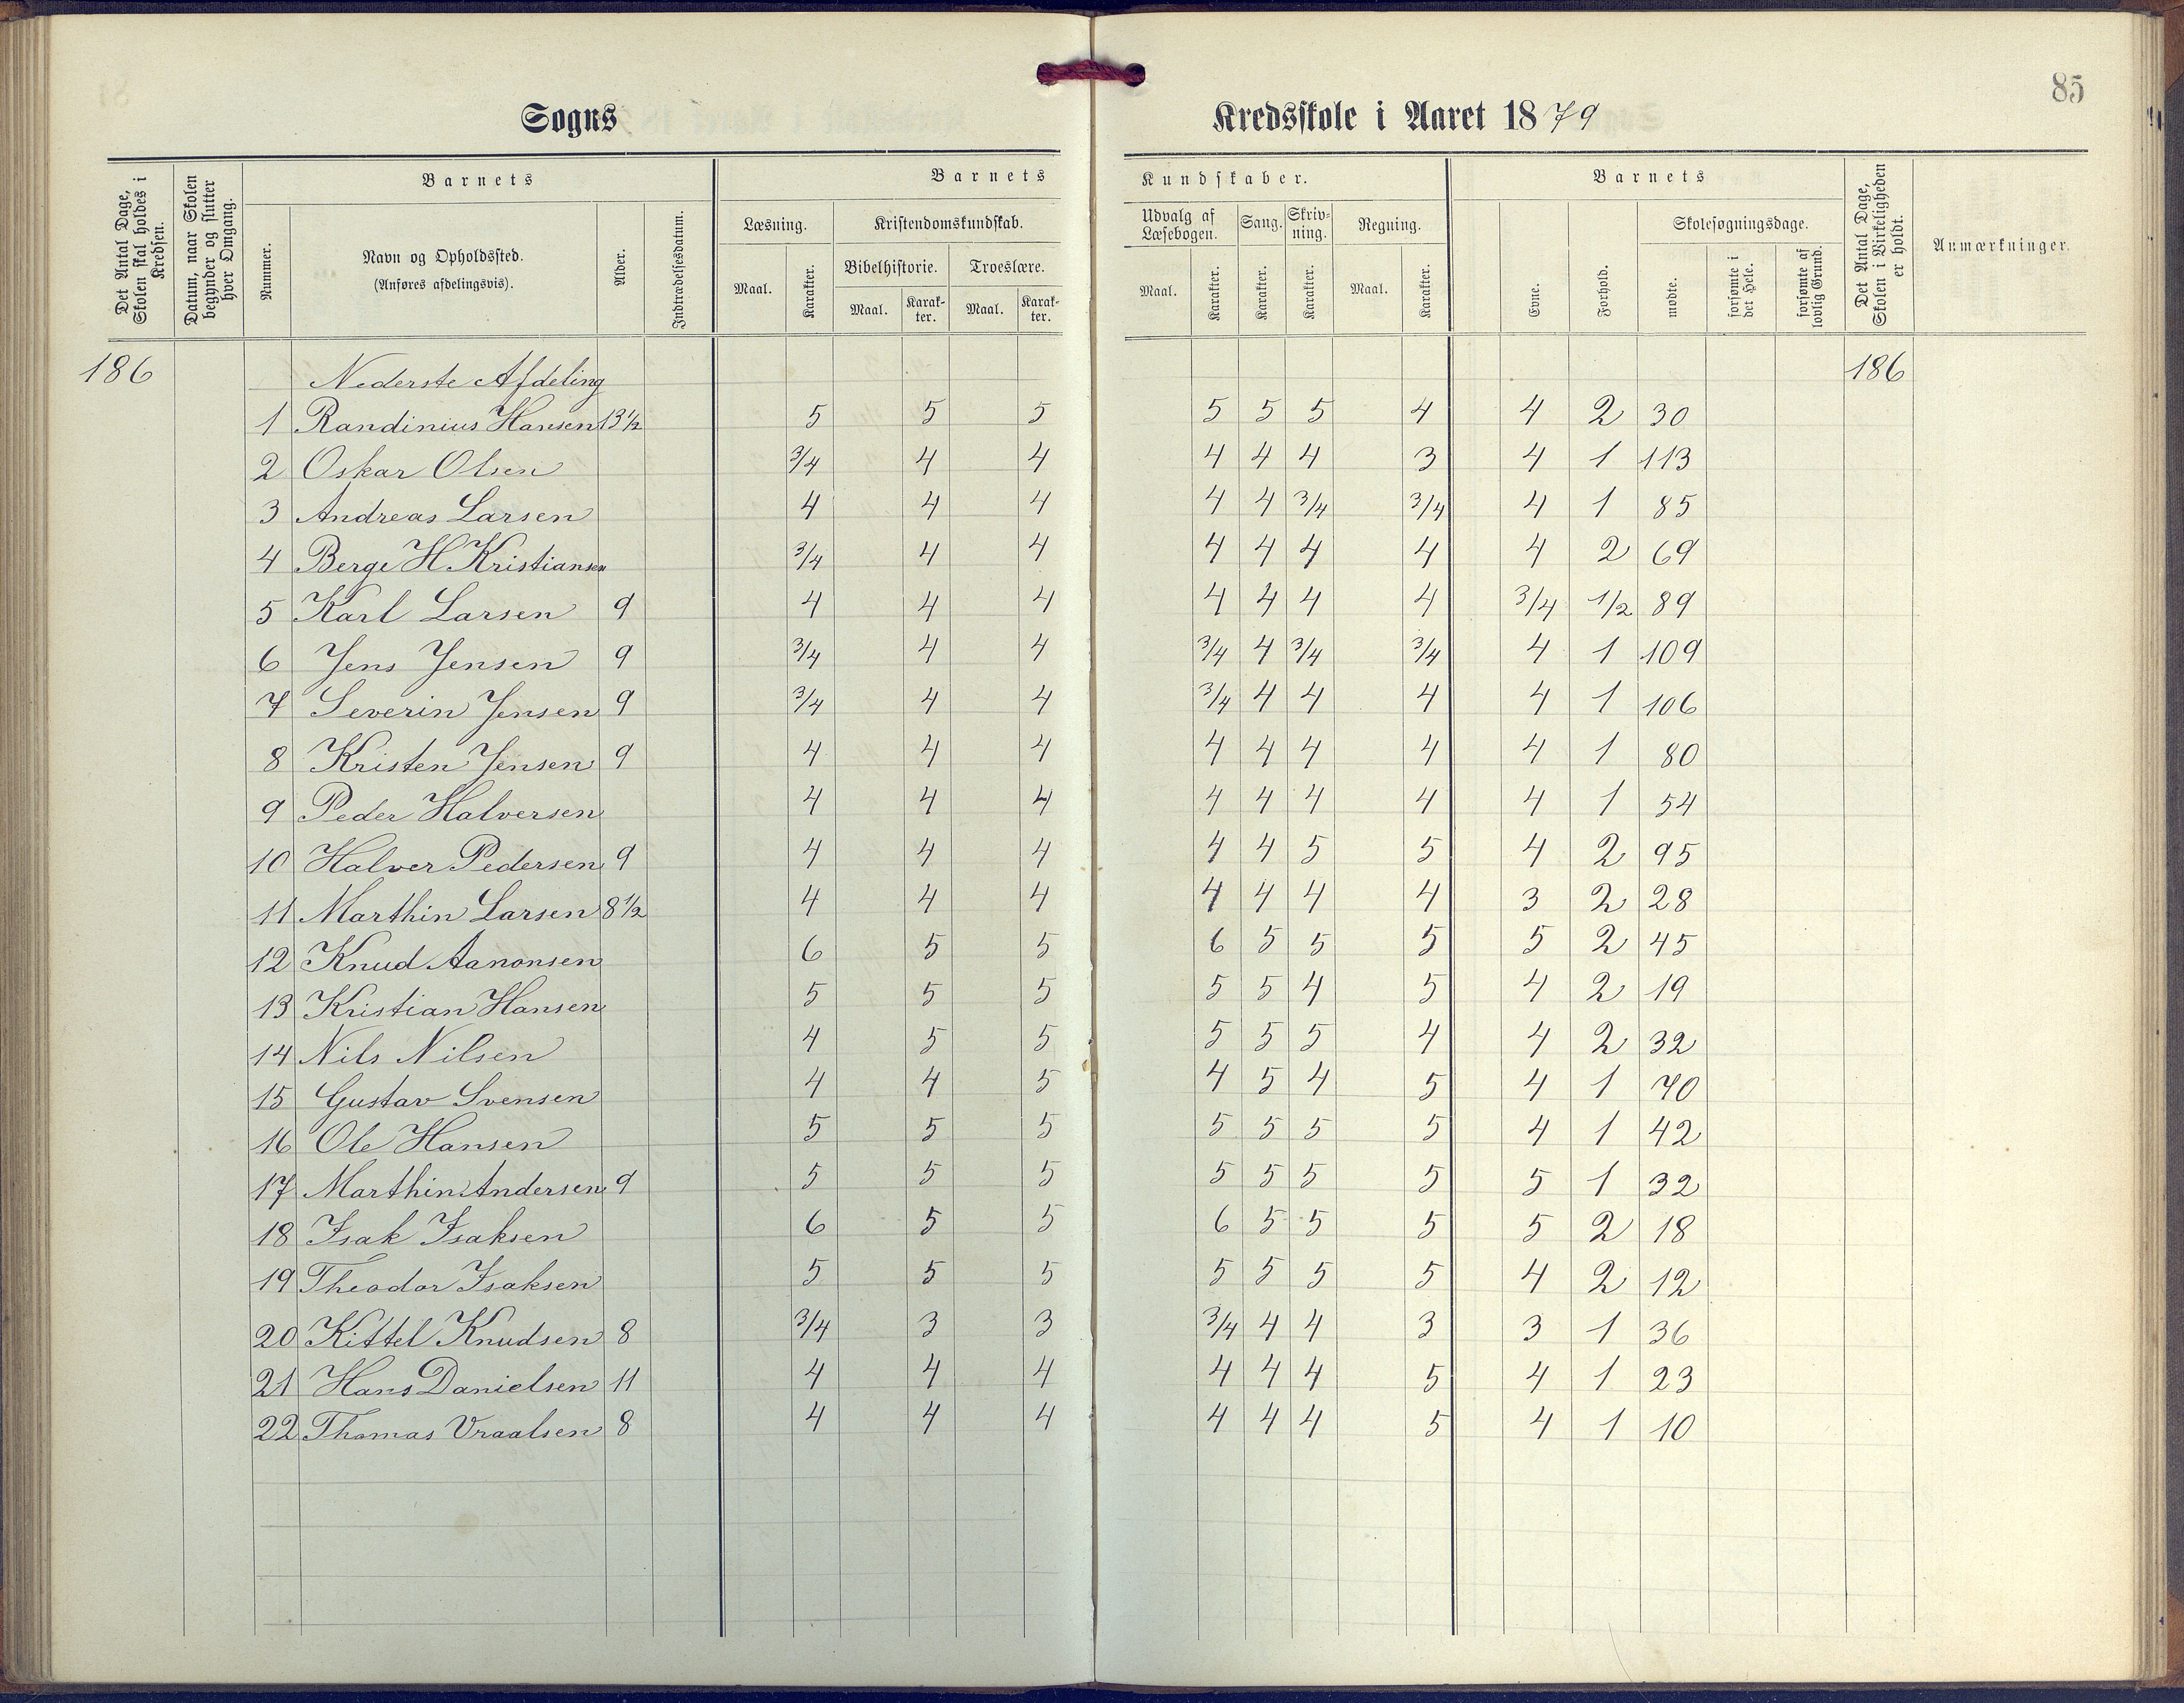 85
Sogns Kredsskole i Aaret 1879
Det Antal Dage, Skolen skal holdes i Kredsen.
Datum, naar Skolen begynder og slutter hver Omgang.
Barnets
Nummer.
Navn og Opholdssted.
(Anføres afdelingsvis).
Alder.
Indtrædelsesdatum.
Barnets Kundskaber.
Læsning.
Maal. Karakter.
Kristendomskundskab.
Bibelhistorie. Troeslære.
Maal. Karakter. Maal. Karakter.
Udvalg af Læsebogen. Sang. Skrivning. Regning.
Maal. Karakter. Karakter. Karakter. Maal. Karakter.
Barnets
Evne. Forhold.
Skolesøgningsdage.
mødte. forsømte i det Hele. forsømte af lovlig Grund.
Det Antal Dage, Skolen i Virkeligheden er holdt.
Anmærkninger.
186 Nederste Afdeling 186
1 Randinius Hansen 13½ 5 5 5 5 5 5 4 4 2 30
2 Oskar Olsen 3/4 4 4 4 4 4 3 4 1 113
3 Andreas Larsen 4 4 4 4 4 3/4 3/4 4 1 85
4 Berge H Kristiansen 3/4 4 4 4 4 4 4 4 2 69
5 Karl Larsen 9 4 4 4 4 4 4 4 3/4 1/2 89
6 Jens Jensen 9 3/4 4 4 3/4 4 3/4 3/4 4 1 109
7 Severin Jensen 9 3/4 4 4 3/4 4 4 4 4 1 106
8 Kristen Jensen 9 4 4 4 4 4 4 4 4 1 80
9 Peder Halversen 4 4 4 4 4 4 4 4 1 54
10 Halver Pedersen 9 4 4 4 4 4 5 5 4 2 95
11 Marthin Larsen 8½ 4 4 4 4 4 4 4 3 2 28
12 Knud Aanonsen 6 5 5 6 5 5 5 5 2 45
13 Kristian Hansen 5 5 5 5 5 4 5 4 2 19
14 Nils Nilsen 4 5 5 5 5 5 4 4 2 32
15 Gustav Svensen 4 4 5 4 5 4 5 4 1 70
16 Ole Hansen 5 5 5 5 5 5 5 4 1 42
17 Marthin Andersen 9 5 5 5 5 5 5 5 5 1 32
18 Isak Isaksen 6 5 5 6 5 5 5 5 2 18
19 Theodor Isaksen 5 5 5 5 5 5 5 4 2 12
20 Kittel Knudsen 8 3/4 3 3 3/4 4 4 3 3 1 36
21 Hans Danielsen 11 4 4 4 4 4 4 5 4 1 23
22 Thomas Vraalsen 8 4 4 4 4 4 4 5 4 1 10